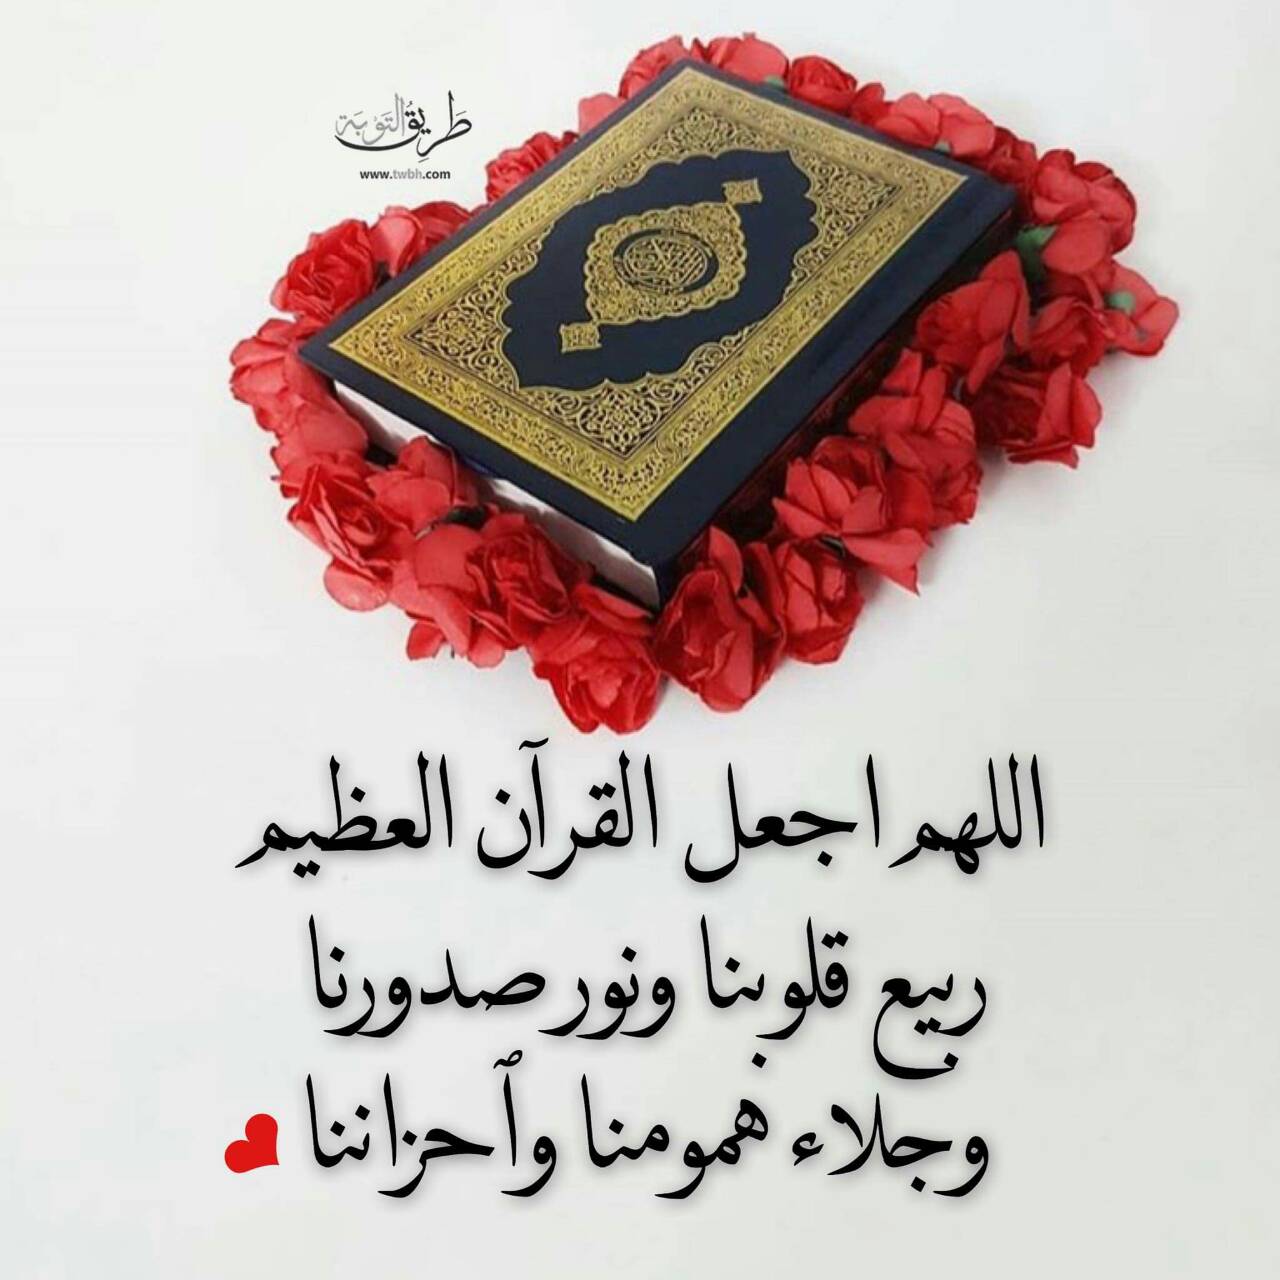 طَرِيقُ التَّوْبَة
www.twbh.com
اللهم اجعل القرآن العظيم
ربيع قلوبنا ونور صدورنا
وجلاء همومنا وٱحزاننا